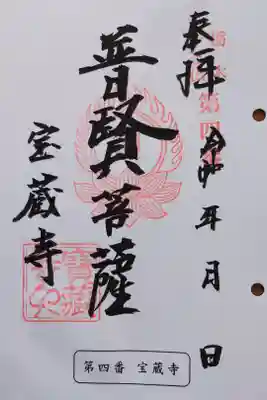 奉拝
令和 年 月 日
普賢菩薩
宝蔵寺
第四番 宝蔵寺